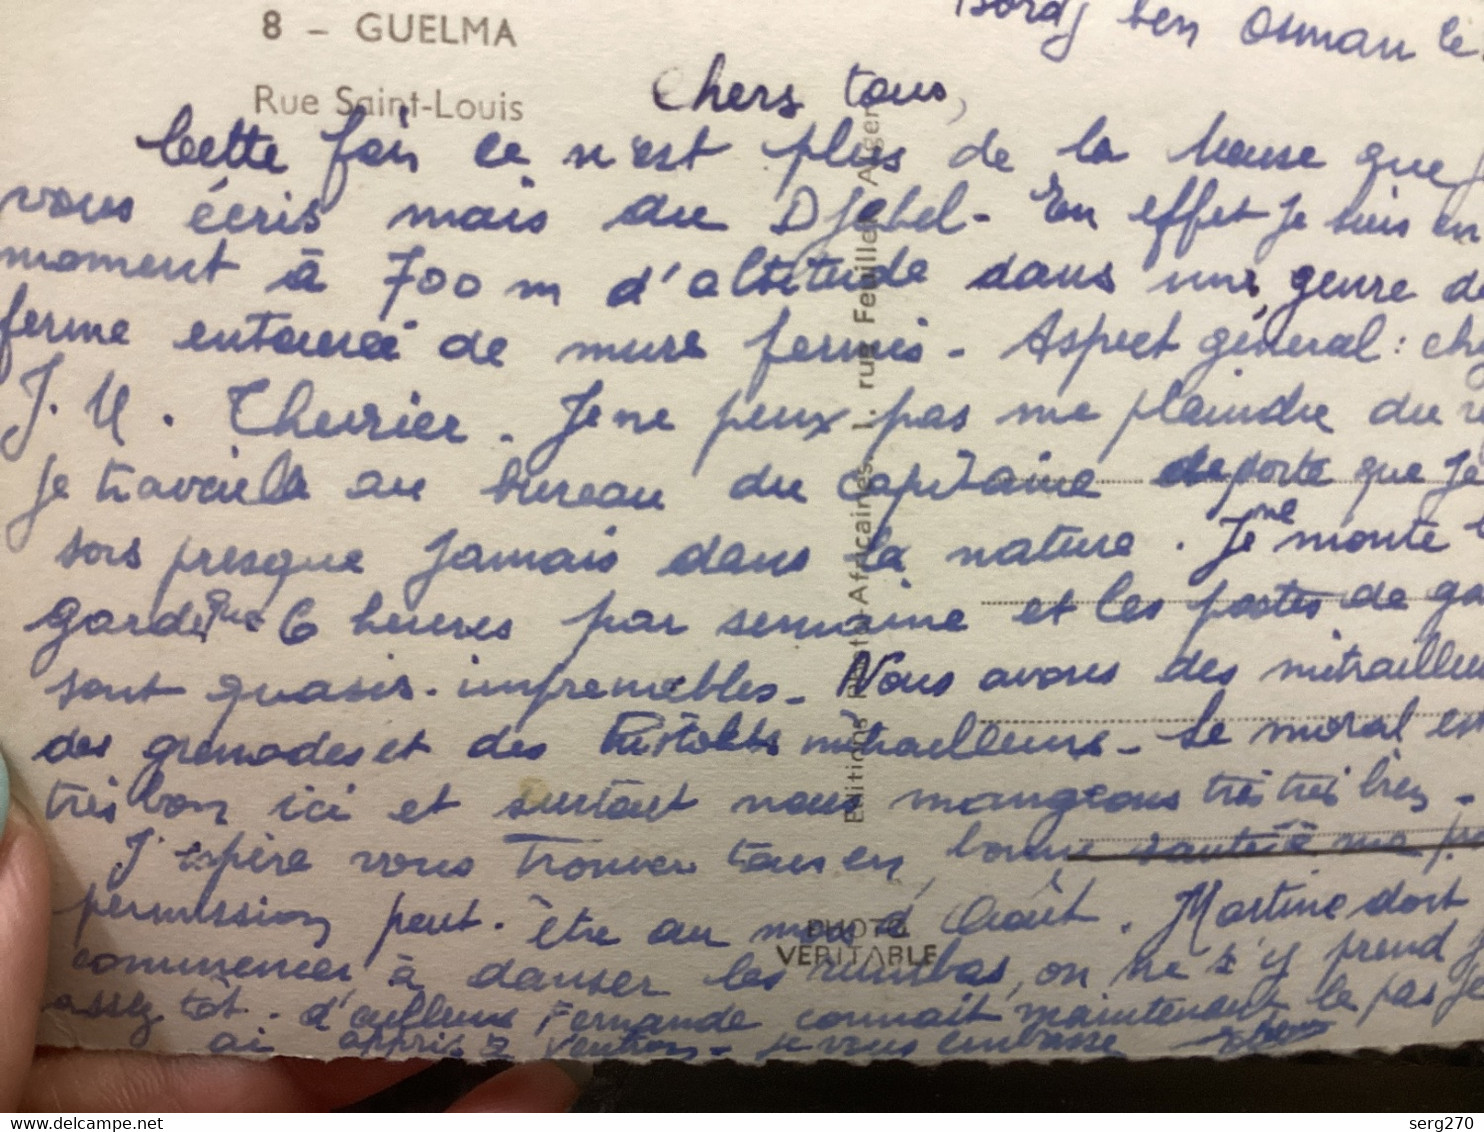 8 - GUELMA
Rue Saint-Louis
Bordj ben Osman le
Chers tous,
Cette fois ce n'est plus de la
vous écris mais du Djebel - En effet je suis en
moment à 700 m d'altitude dans une genre de
ferme entourée de murs fermés - Aspect général : chez
J. M. Je ne peux pas me plaindre du
je travaille au bureau du capitaine de sorte que je
sors presque jamais dans la nature. Je ne monte
garde que 6 heures par semaine et les postes de ga
sont quasis-imprenables - Nous avons des mitrailleu
des grenades et des Pistolets mitrailleurs - Le moral est
très bon ici et surtout nous mangeons très très bien -
J'espère vous trouver tous en bonne santé à ma
permission peut-être au mois d'Août. Martine doit
commencer à danser les rumbas, on ne s'y prend
assez tôt. d'ailleurs Fernande connait maintenant le pas je
ai appris à - je vous embrasse
Editions Photo-Africaines. 1. rue Feuillet Alger
PHOTO
VERITABLE
www.delcampe.net
serg270